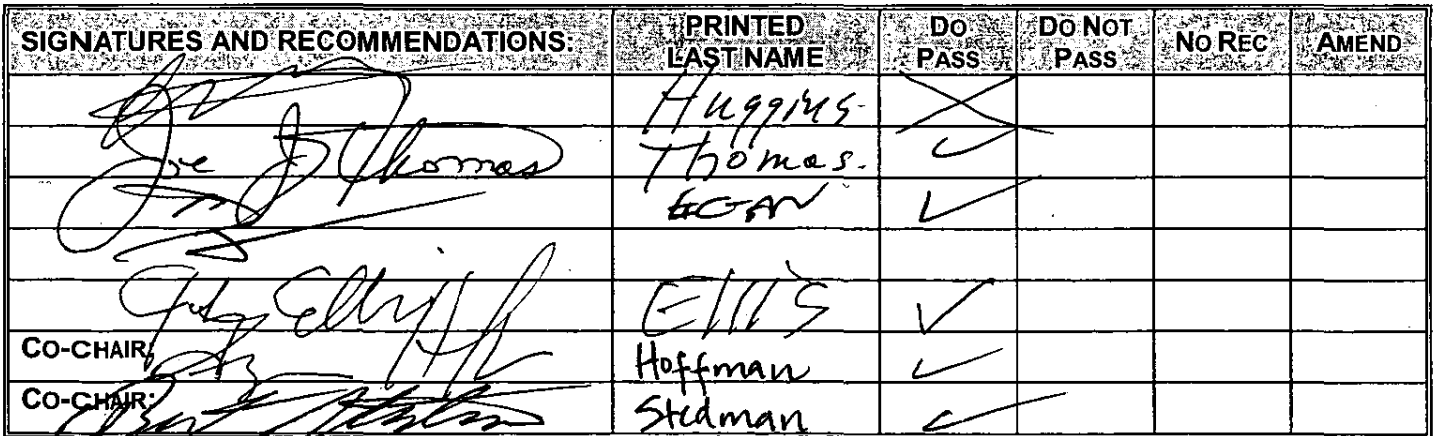 SIGNATURES AND RECOMMENDATIONS: PRINTED LAST NAME DO PASS DO NOT PASS NO REC AMEND
Huggins
Joe J Thomas Thomas.
EGAN
Ellis
CO-CHAIR: Hoffman
CO-CHAIR: Bert Stedman Stedman